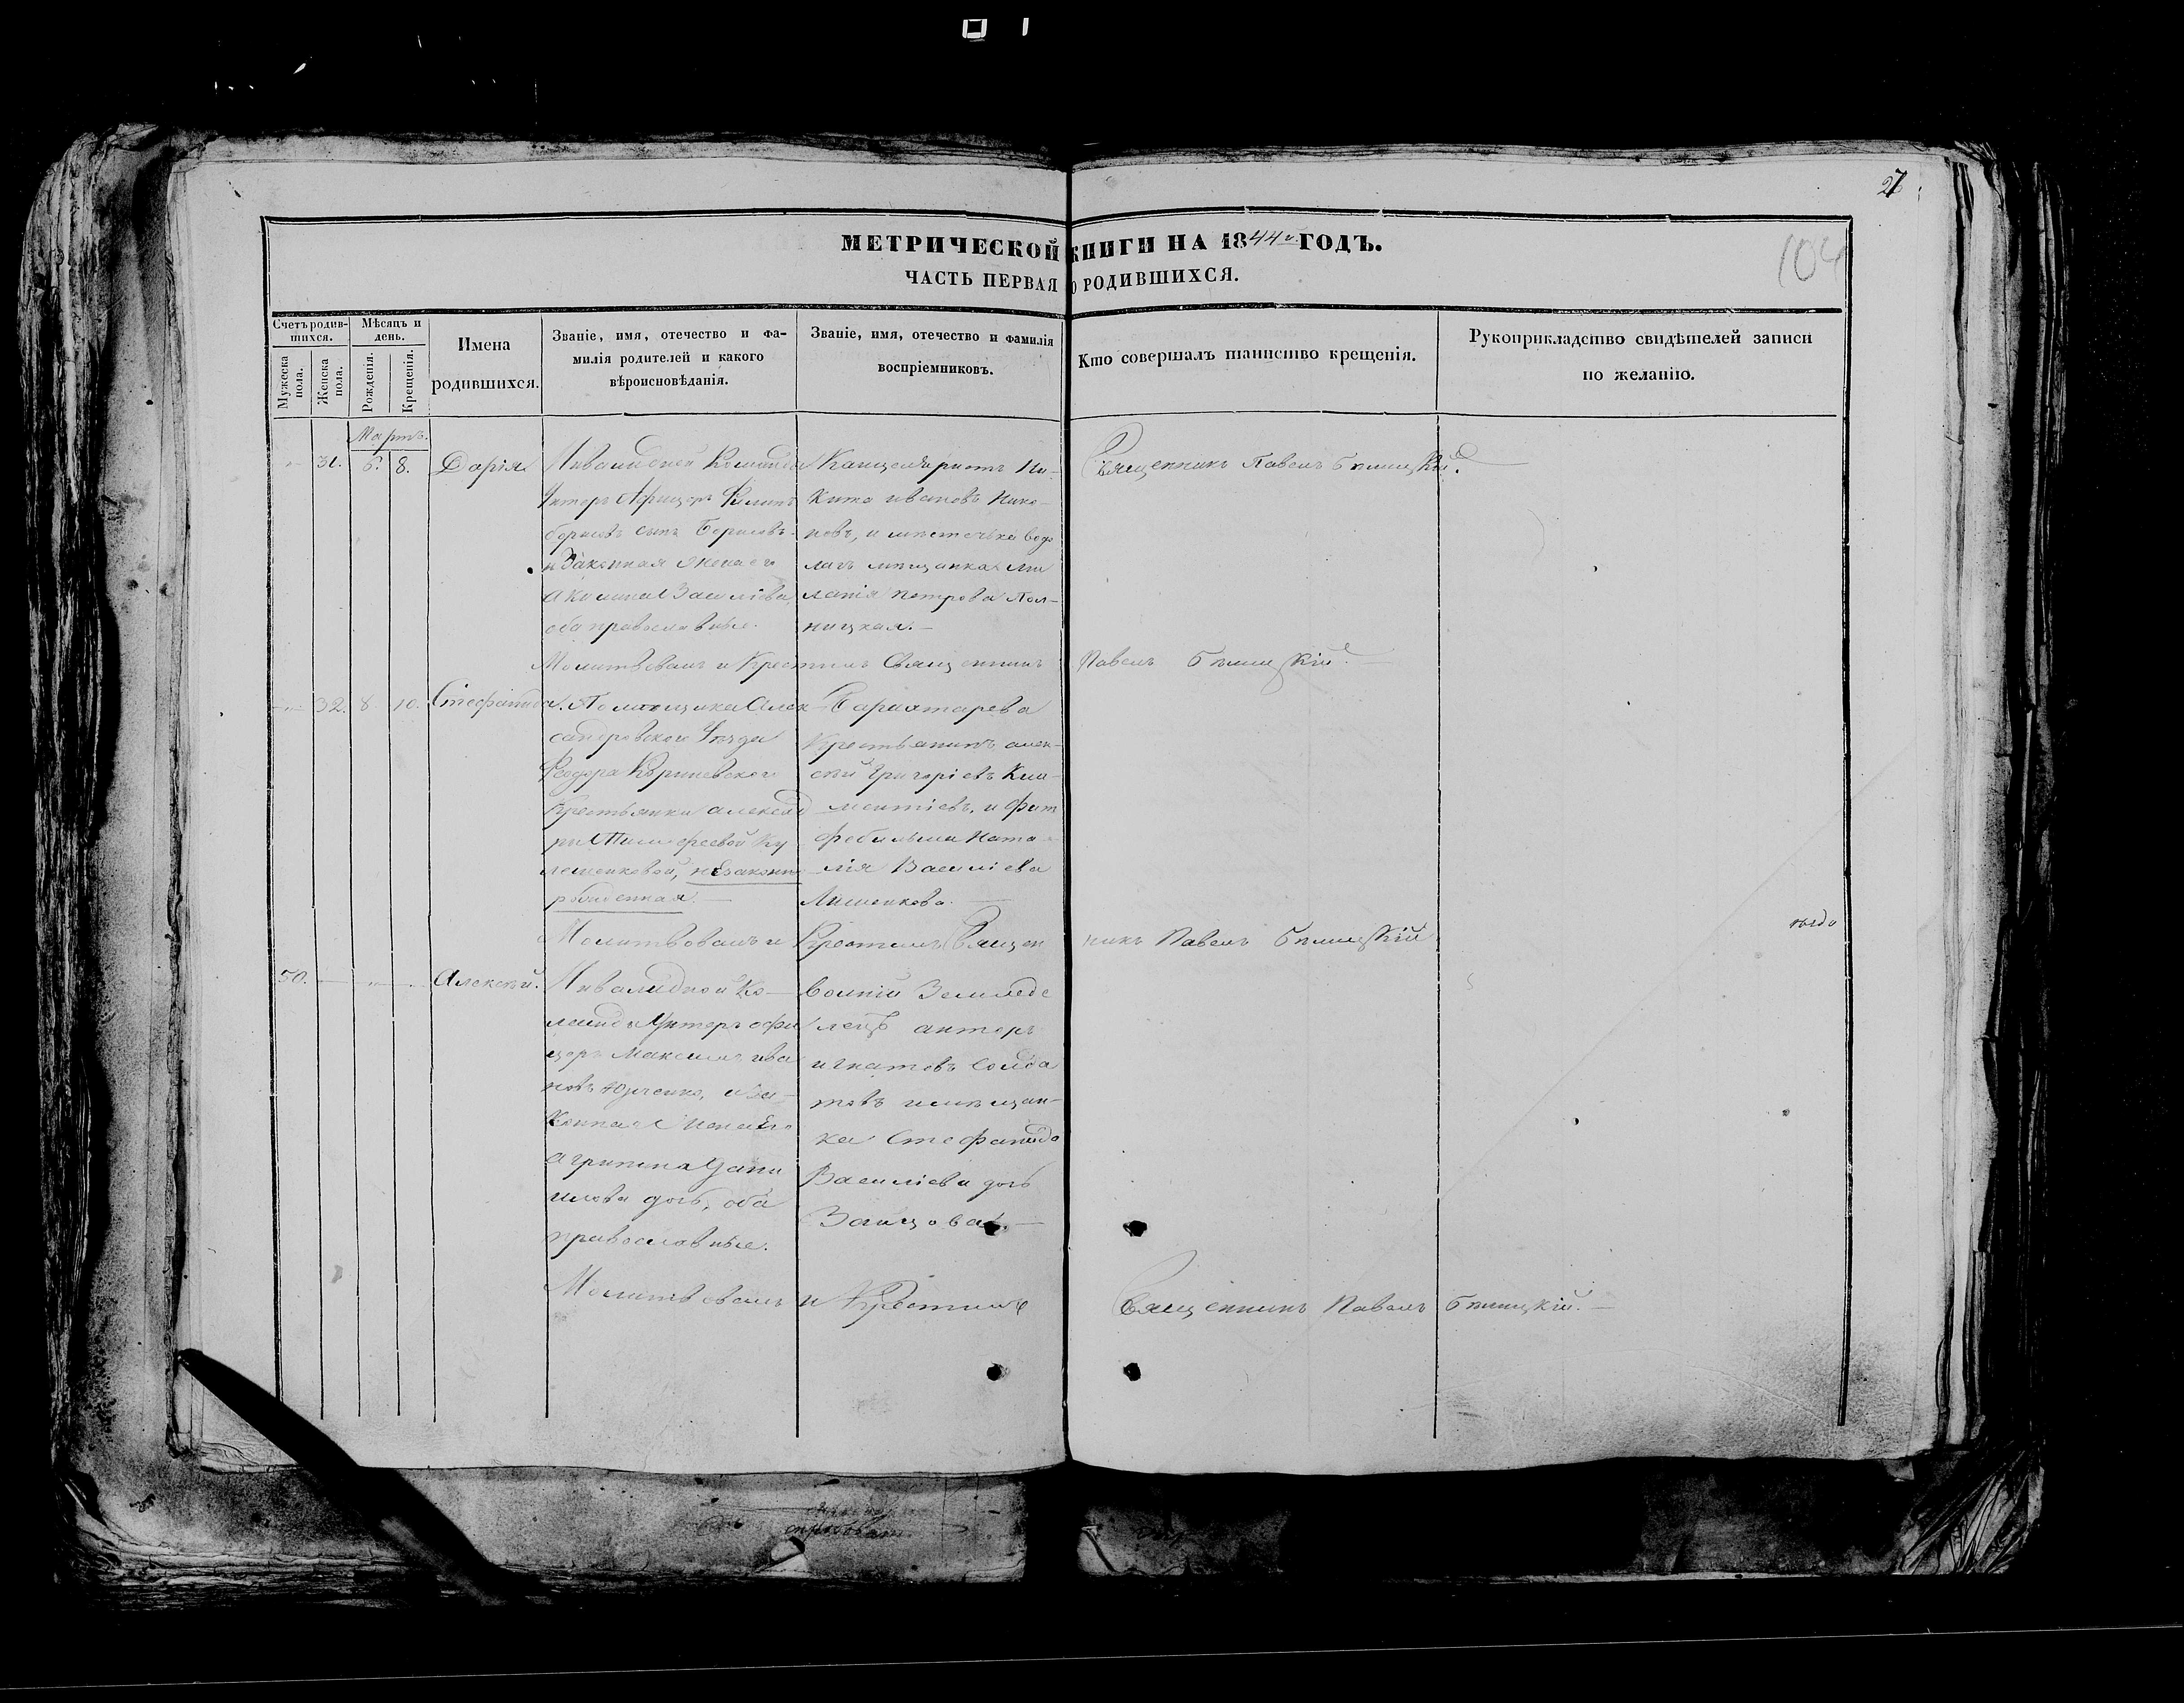 27
104
МЕТРИЧЕСКОЙ КНИГИ НА 1844 й ГОДЪ.
ЧАСТЬ ПЕРВАЯ О РОДИВШИХСЯ.
Счетъ родив-
шихся.
Мужеска
пола.
Женска
пола.
Мѣсяцъ и
день.
Рожденія.
Крещенія.
Имена
родившихся.
Званіе, имя, отечество и фа-
милія родителей и какого
вѣроисповѣданія.
Званіе, имя, отечество и фамилія
воспріемниковъ.
Кто совершалъ таинство крещенія.
Рукоприкладство свидѣтелей записи
по желанію.
Мартъ.
31. 6. 8. Дарія
Инвалидной Команды
Унтеръ Афицеръ Филипъ
борисовъ сынъ Борисовъ
и Законная жена его
Акилина Василіева
оба православные.
Канцеляристъ Ни-
кита ивановъ Нико-
новъ, и мѣстечка Водо
лагъ мѣщанка Ме
ланія Петрова Пол-
ницкая.
Священникъ Павелъ Бѣлицкій.
Молитвовалъ и Крестилъ Священникъ Павелъ Бѣлицкій
32. 8. 10. Стефанида.
Помѣщика Алек
сандровскаго Уѣзда
Федора
Крестьянки александ
ры Тимофеевой Ку
лешенковой, незаконно
рожденная.
Крестьянинъ алек-
сѣй Григоріевъ Кли-
ментіевъ, и
фебельша Ната-
лія Василіева
Лишенкова.
Молитвовалъ и Крестилъ Священ
никъ Павелъ Бѣлицкій
50. Алексѣй.
Инвалидной Ко-
манды Унтеръ офи
церъ Максимъ ива
новъ Юрченко, и За-
конная жена его
Агрипина Дани
илова дочь, оба
православные.
Воиній Земледе
лецъ
игнатовъ Солда
товъ и мѣщан-
ка Стефанида
Василіева дочь
Заицова.
Молитвовалъ и Крестилъ Священникъ Павелъ Бѣлицкій.